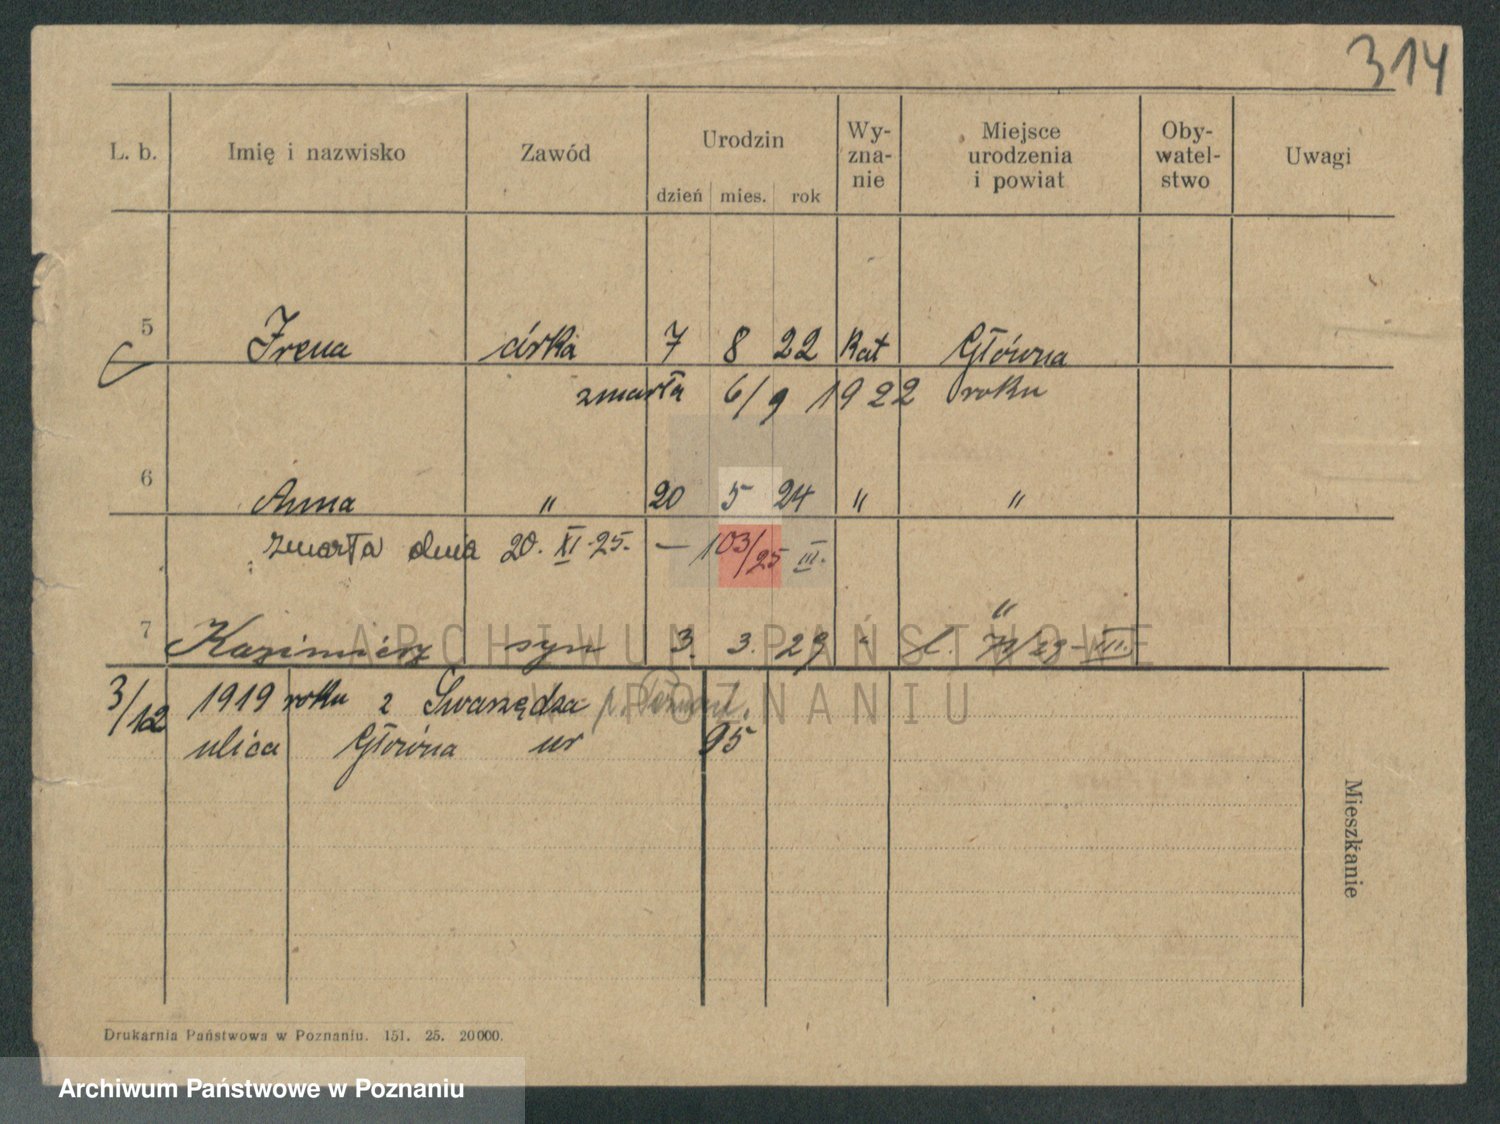 314
L. b. Imię i nazwisko Zawód Urodzin Wy-zna-nie Miejsce urodzenia i powiat Oby-watel-stwo Uwagi
dzień mies. rok
5 Irena córka 7 8 22 Kat Główna
zmarła 6/9 1922 roku
6 Anna " 20 5 24 " "
zmarła dnia 20. XI. 25. — 103/25 III.
"
7 Kazimierz syn 3. 3. 29 " l. /29 - III.
ARCHIWUM PAŃSTWOWE
3/12 1919 roku z Swarzędza
W POZNANIU
ulica Główna nr 95
Mieszkanie
Drukarnia Państwowa w Poznaniu. 151. 25. 20000.
Archiwum Państwowe w Poznaniu